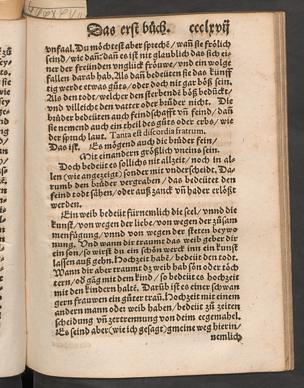 Das erst bůch. ccclxvij
vnfaal. Du möchtest aber spreche, wañ sie frölich
seind, wie dañ: dañ es ist nit glaublich das sich ei-
ner der freünden vnglück fröuwe, vnd ein wolge
fallen darab hab. Als dan bedeüten sie das künff
tig werde etwas gůts, oder doch nit gar böß sein.
Als den todt, welcher den sterbende böß bedückt,
vnd villeicht den vatter oder brůder nicht. Die
brůder bedeüten auch feindschafft vñ feind, dañ
sie nemend auch ein theil des gůts oder erbs, wie
der spruch laut. Tanta est discordia fratrum.
Das ist. Es mögend auch die brůder sein,
Mit einandern größlich vneins sein.
Doch bedeüt es sollichs nit allzeit, noch in al-
len (wie angezeigt) sonder mit vnderscheidt. Da
rumb den brůder vergraben, das bedeütet den
feind todt sähen, oder auß zanck vñ hader erlößt
werden.
Ein weib bedeüt fürnemlich die seel, vnnd die
kunst, von wegen der liebe, von wegen der zůsam
menfůgung, vnnd von wegen der steten bywo-
nung. Vnd wann dir traumt das weib geber dir
ein son, so wirst du ein schön werck inn ein kunst
lassen auß gehn. Hochzeit habē, bedeüt den todt.
Wann dir aber traumt dz weib hab son oder töch
tern, od gäg mit dem kind, so bedeüt es hochzeit
mit den kindern haltē. Darüb ist es einer schwan
gern frauwen ein gůter trau. Hochzeit mit einem
andern mann oder weib haben, bedeüt zů zeiten
scheidung vñ zertrennung von dem eegemahel.
Es seind aber (wie ich gesagt) gmeine weg hierin/
nemlich